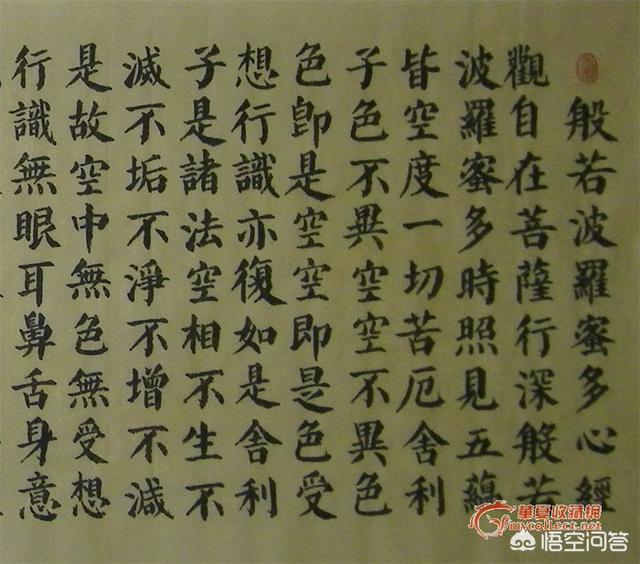 般若波羅蜜多心經
觀自在菩薩行深般若
波羅蜜多時照見五蘊
皆空度一切苦厄舍利
子色不異空空不異色
色即是空空即是色受
想行識亦復如是舍利
子是諸法空相不生不
滅不垢不淨不增不減
是故空中無色無受想
行識無眼耳鼻舌身意
華夏收藏網
mycollect.net
悟空问答